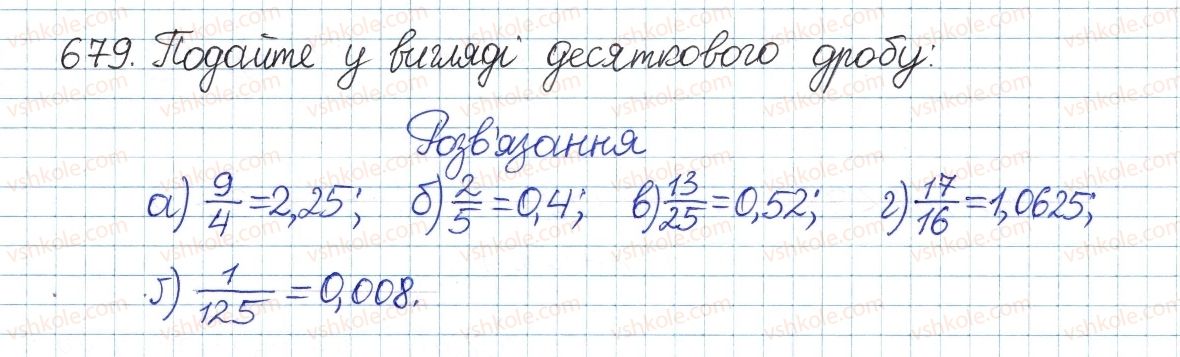 679. Подайте у вигляді десяткового дробу:
Розв'язання
а) 9/4 = 2,25; б) 2/5 = 0,4; в) 13/25 = 0,52; г) 17/16 = 1,0625;
ґ) 1/125 = 0,008.